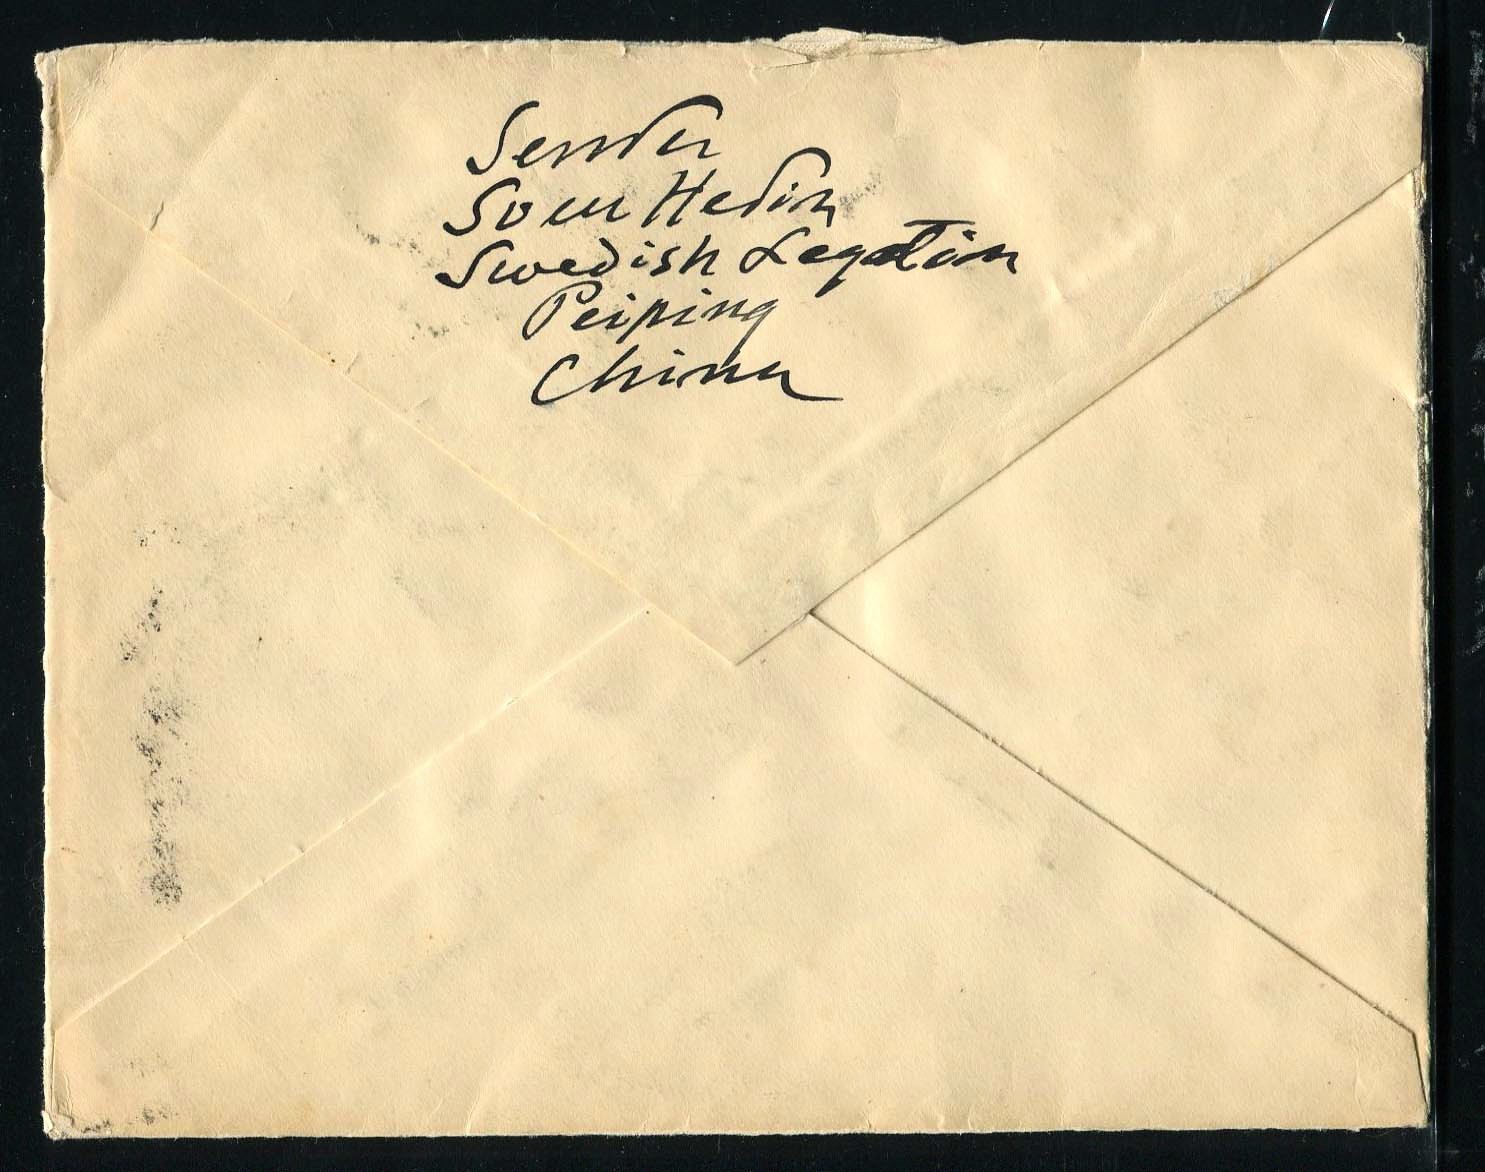 Sender
Sven Hedin
Swedish Legation
Peiping
China